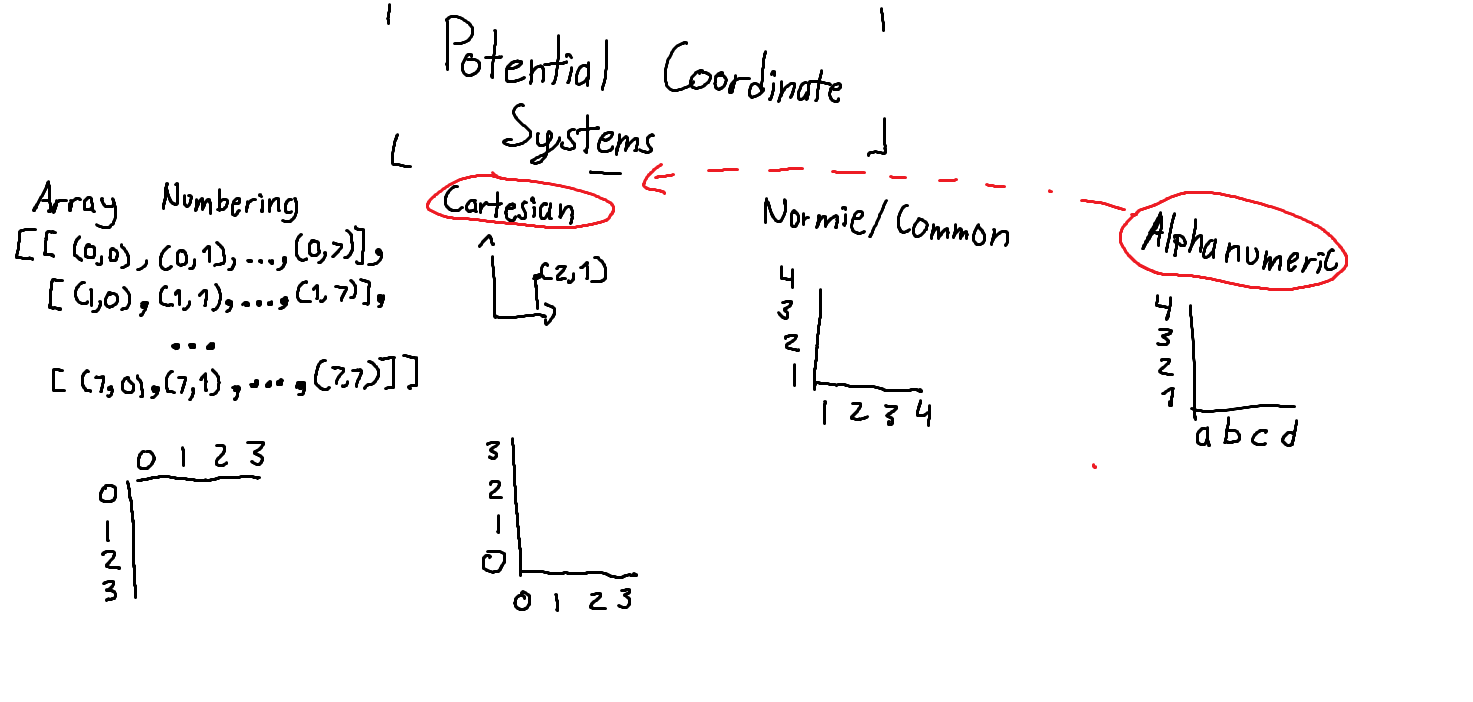 Potential Coordinate
Systems
Array Numbering
[[(0,0), (0,1), ..., (0,7)],
[(1,0), (1,1), ..., (1,7)],
...
[(7,0), (7,1), ..., (7,7)]]
0 1 2 3
0
1
2
3
Cartesian
(2,1)
3
2
1
0
0 1 2 3
Normie/Common
4
3
2
1
1 2 3 4
Alphanumeric
4
3
2
1
a b c d